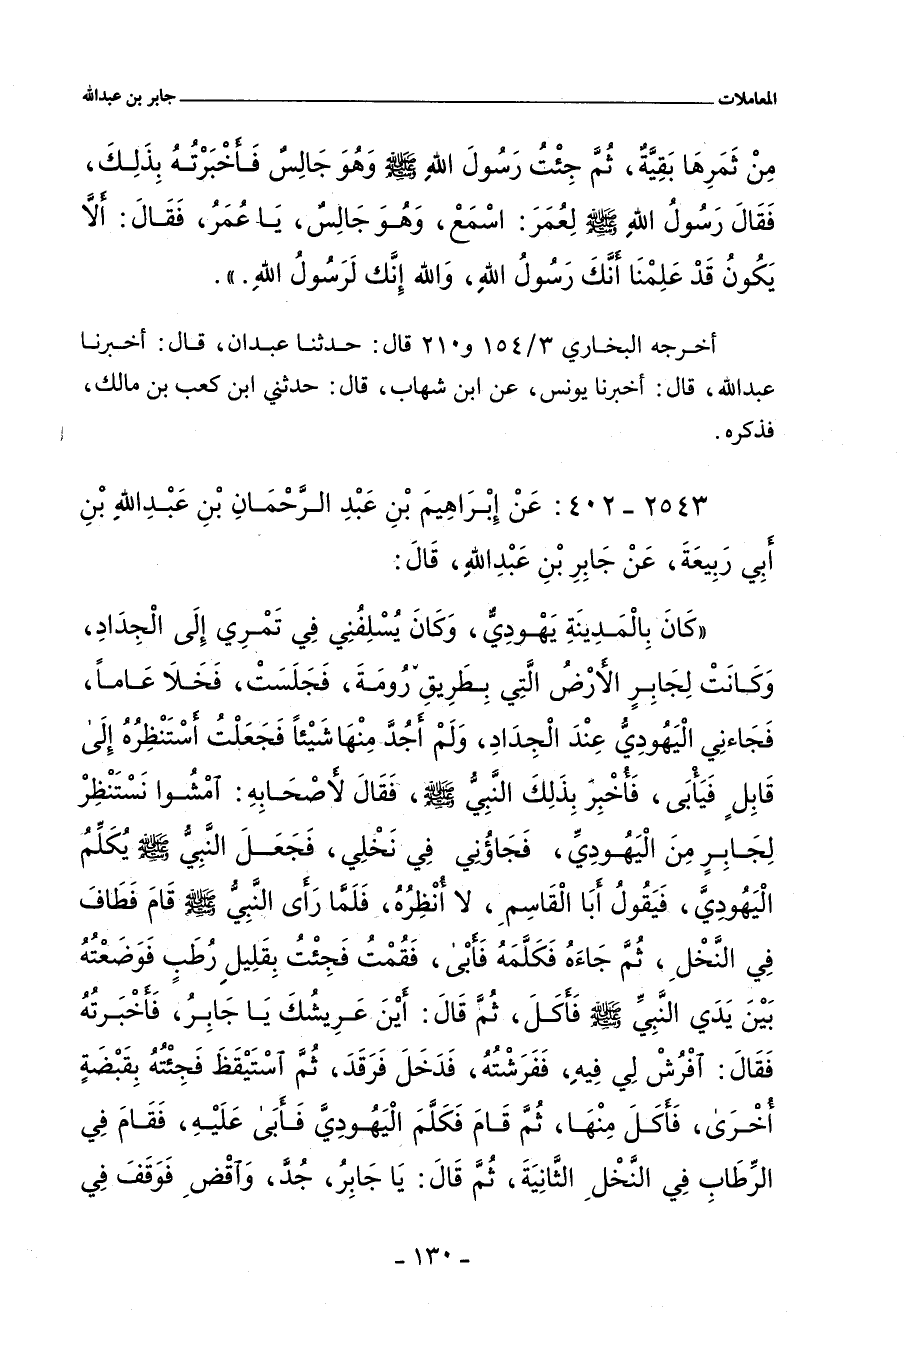 المعاملات ــــــــــــــــــــ جابر بن عبدالله
مِنْ ثَمَرِهَا بَقِيَّةٌ، ثُمَّ جِئْتُ رَسُولَ اللهِ ﷺ وَهُوَ جَالِسٌ فَأَخْبَرْتُهُ بِذَلِكَ،
فَقَالَ رَسُولُ اللهِ ﷺ لِعُمَرَ: اسْمَعْ، وَهُوَ جَالِسٌ، يَا عُمَرُ، فَقَالَ: أَلَّا
يَكُونُ قَدْ عَلِمْنَا أَنَّكَ رَسُولُ اللهِ، وَالله إِنَّك لَرَسُولُ اللهِ.».
أخرجه البخاري ١٥٤/٣ و٢١٠ قال: حدثنا عبدان، قال: أخبرنا
عبدالله، قال: أخبرنا يونس، عن ابن شهاب، قال: حدثني ابن كعب بن مالك،
فذكره.
٢٥٤٣ - ٤٠٢: عَنْ إِبْرَاهِيمَ بْنِ عَبْدِ الرَّحْمَانِ بْنِ عَبْدِاللهِ بْنِ
أَبِي رَبِيعَةَ، عَنْ جَابِرِ بْنِ عَبْدِاللهِ، قَالَ:
«كَانَ بِالْمَدِينَةِ يَهُودِيٌّ، وَكَانَ يُسْلِفُنِي فِي تَمْرِي إِلَى الْجِدَادِ،
وَكَانَتْ لِجَابِرٍ الأَرْضُ الَّتِي بِطَرِيقِ رُومَةَ، فَجَلَسَتْ، فَخَلَا عَاماً،
فَجَاءنِي الْيَهُودِيُّ عِنْدَ الْجِدَادِ، وَلَمْ أَجُدَّ مِنْهَا شَيْئاً فَجَعَلْتُ أَسْتَنْظِرُهُ إِلَىٰ
قَابِلٍ فَيَأْبَى، فَأُخْبِرَ بِذَلِكَ النَّبِيُّ ﷺ، فَقَالَ لأَصْحَابِهِ: آمْشُوا نَسْتَنْظِرْ
لِجَابِرٍ مِنَ الْيَهُودِيِّ، فَجَاؤُنِي فِي نَخْلِي، فَجَعَلَ النَّبِيُّ ﷺ يُكَلِّمُ
الْيَهُودِيَّ، فَيَقُولُ أَبَا الْقَاسِمِ، لا أُنْظِرُهُ، فَلَمَّا رَأَى النَّبِيُّ ﷺ قَامَ فَطَافَ
فِي النَّخْلِ، ثُمَّ جَاءَهُ فَكَلَّمَهُ فَأَبَىٰ، فَقُمْتُ فَجِئْتُ بِقَلِيلِ رُطَبٍ فَوَضَعْتُهُ
بَيْنَ يَدَيِ النَّبِيِّ ﷺ فَأَكَلَ، ثُمَّ قَالَ: أَيْنَ عَرِيشُكَ يَا جَابِرُ، فَأَخْبَرْتُهُ
فَقَالَ: آفْرُشْ لِي فِيهِ، فَفَرَشْتُهُ، فَدَخَلَ فَرَقَدَ، ثُمَّ آسْتَيْقَظَ فَجِئْتُهُ بِقَبْضَةٍ
أُخْرَىٰ، فَأَكَلَ مِنْهَا، ثُمَّ قَامَ فَكَلَّمَ الْيَهُودِيَّ فَأَبَىٰ عَلَيْهِ، فَقَامَ فِي
الرِّطَابِ فِي النَّخْلِ الثَّانِيَةَ، ثُمَّ قَالَ: يَا جَابِرُ، جُدَّ، وَآقْضِ فَوَقَفَ فِي
- ١٣٠ -